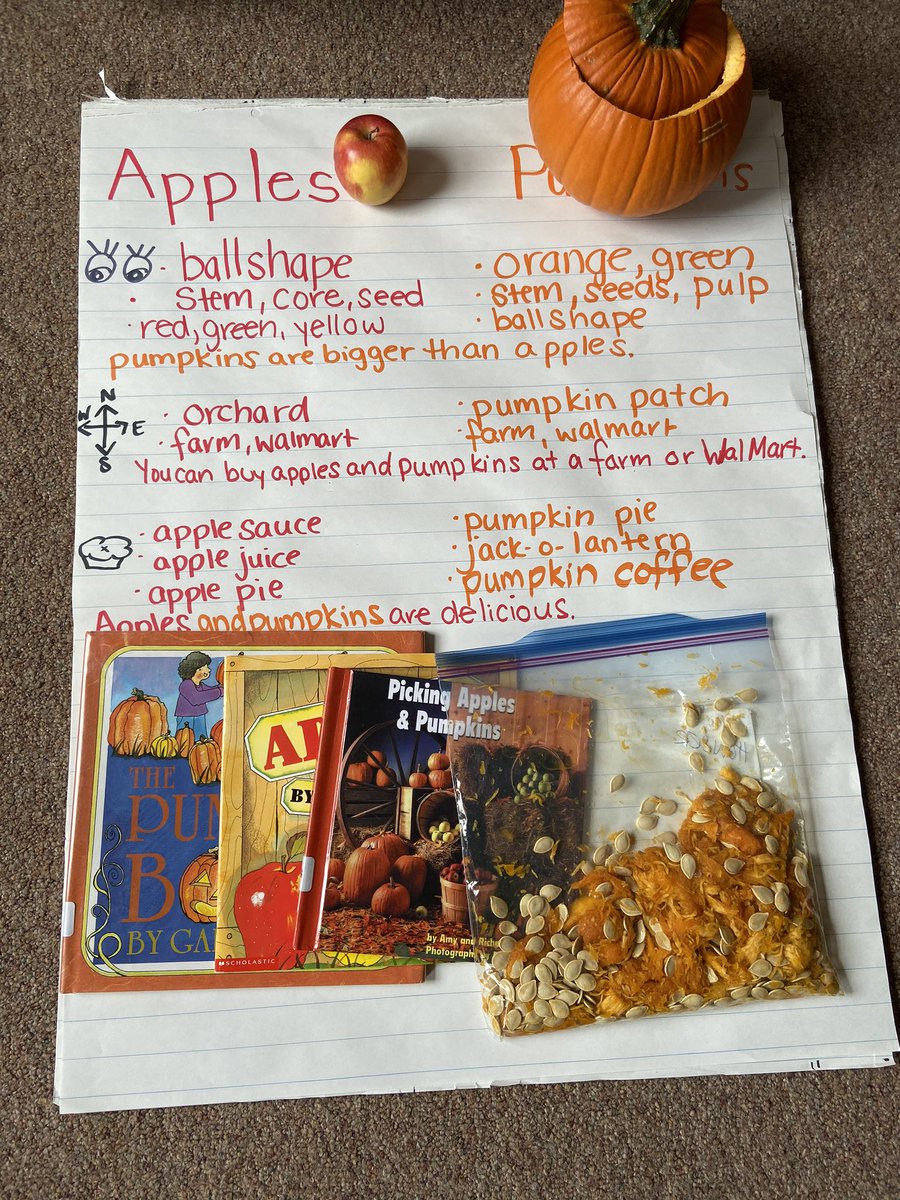 Apples
ballshape
stem, core, seed
red, green, yellow
orange, green
stem, seeds, pulp
ballshape
pumpkins are bigger than apples.
N
W E
S
orchard
farm, walmart
pumpkin patch
farm, walmart
You can buy apples and pumpkins at a farm or WalMart.
apple sauce
apple juice
apple pie
pumpkin pie
jack-o-lantern
pumpkin coffee
Apples and pumpkins are delicious.
THE
BY
SCHOLASTIC
BY
Picking Apples
& Pumpkins
by Amy and